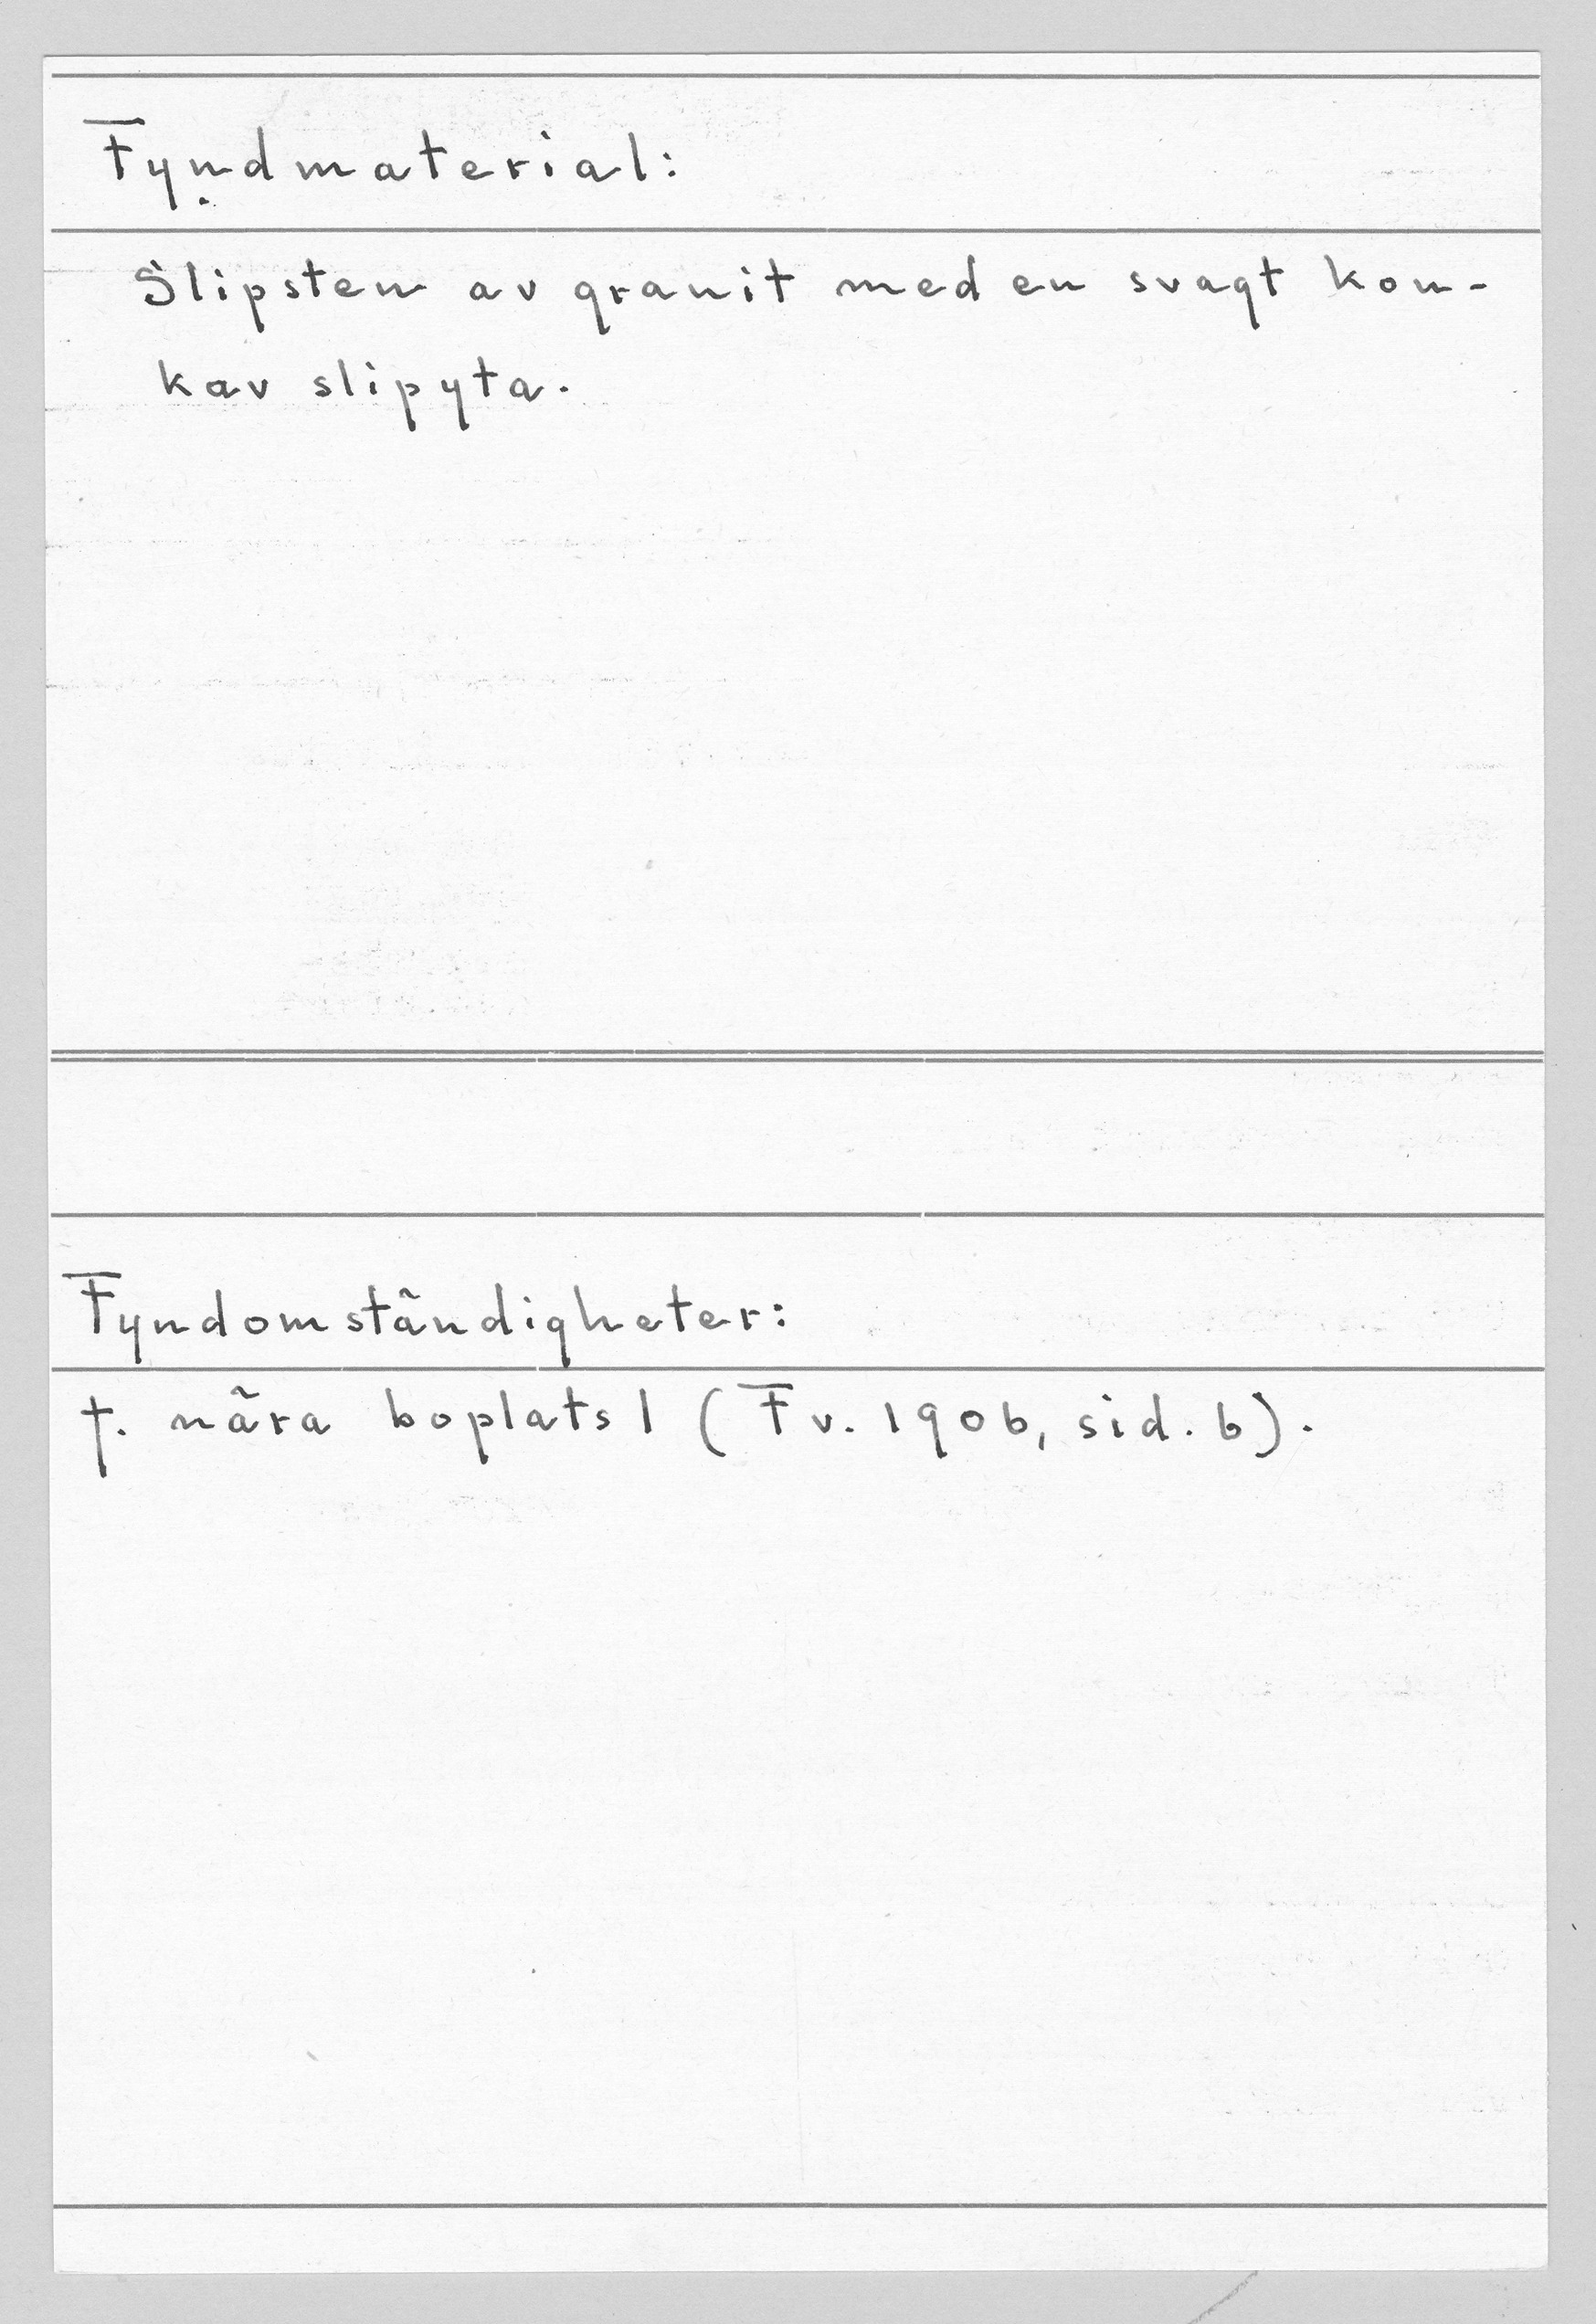 Fyndmaterial:
Slipsten av granit med en svagt kon-
kav slipyta.
Fyndomständigheter:
f. nära boplats 1 (Fv. 1906, sid. 6).